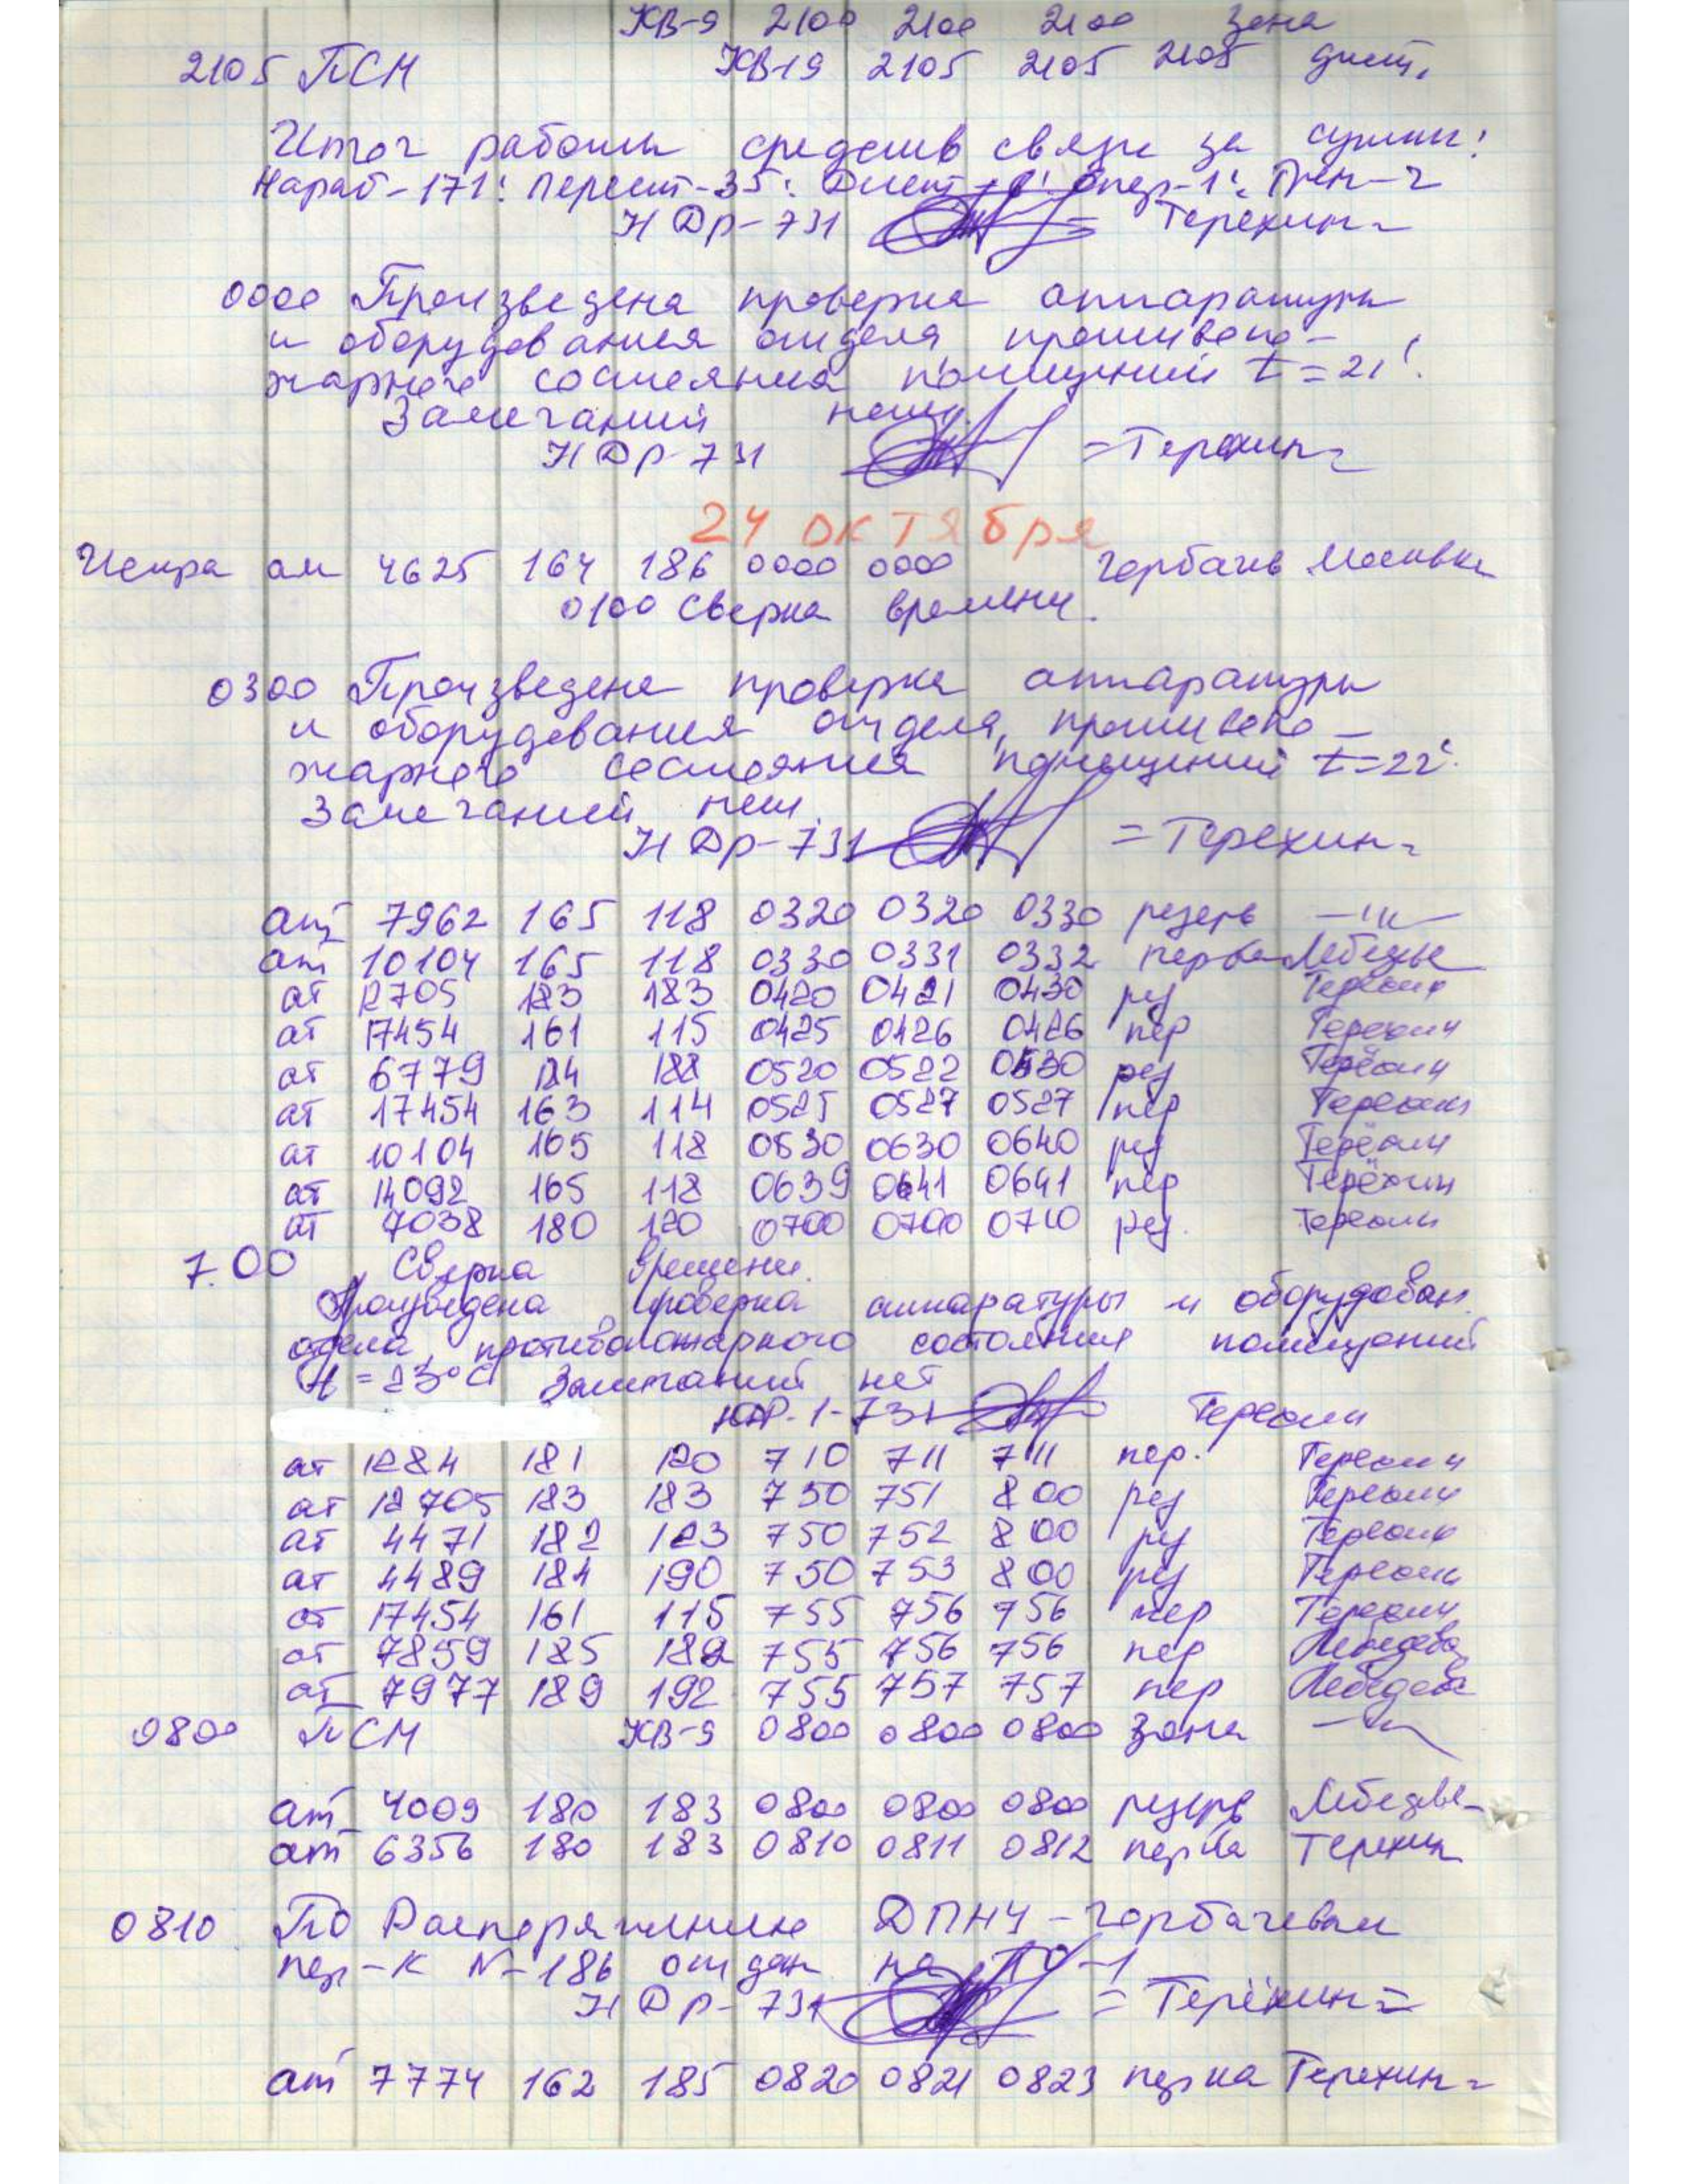 КВ-9 2100 2100 2100 зона
2105 ПСМ КВ-19 2105 2105 2105 дист,
Итог работы средств связи за сутки:
Нараб-171: Перест-35: Опер-1: Трен-2
НДР-731 =Терехин=
0000 Произведена проверка аппаратуры
и оборудования отдела противопо-
жарного состояния помещений t=21°.
Замечаний нет.
НДР-731 =Терехин=
24 ОКТЯБРЯ
Искра ат 4625 164 186 0000 0000 Горбачев Москвы
0100 Сверка времени.
0300 Произведена проверка аппаратуры
и оборудования отдела, противопо-
жарного состояния помещений t=22°.
Замечаний нет.
НДР-731 =Терехин=
ат 7962 165 118 0320 0320 0330 резерв —"—
ат 10104 165 118 0330 0331 0332 перва Лебедев
ат 12705 183 183 0420 0421 0430 рез Терехин
ат 17454 161 115 0425 0426 0426 пер Терехин
ат 6779 184 188 0520 0522 0530 рез Терёхин
ат 17454 163 114 0525 0527 0527 пер Терехин
ат 10104 165 118 0630 0630 0640 рез Терёхин
ат 14092 165 118 0639 0641 0641 пер Терёхин
ат 7038 180 120 0700 0700 0710 рез. Терехин
7.00 Сверка времени.
Произведена проверка аппаратуры и оборудован.
отдела, противопожарного состояния помещений
t=23°С Замечаний нет
НДР-1-731 Терехин
ат 1284 181 120 710 711 711 пер. Терехин
ат 12705 183 183 750 751 800 рез Терехин
ат 4471 182 123 750 752 800 рез Терехин
ат 4489 184 190 750 753 800 рез Терехин
ат 17454 161 115 755 756 756 пер Терехин
ат 7859 185 182 755 756 756 пер Лебедева
ат 7977 189 192 755 757 757 пер Лебедева
0800 ПСМ КВ-9 0800 0800 0800 зона —"—
ат 4009 180 183 0800 0800 0800 резерв Лебедев
ат 6356 180 183 0810 0811 0812 перва Терехин
0810 По Распоряжению ДПНЧ-Горбачевым
пер-к №-186 отдан на ТО-1
НДР-731 =Терёхин=
ат 7774 162 185 0820 0821 0823 перва Терехин=